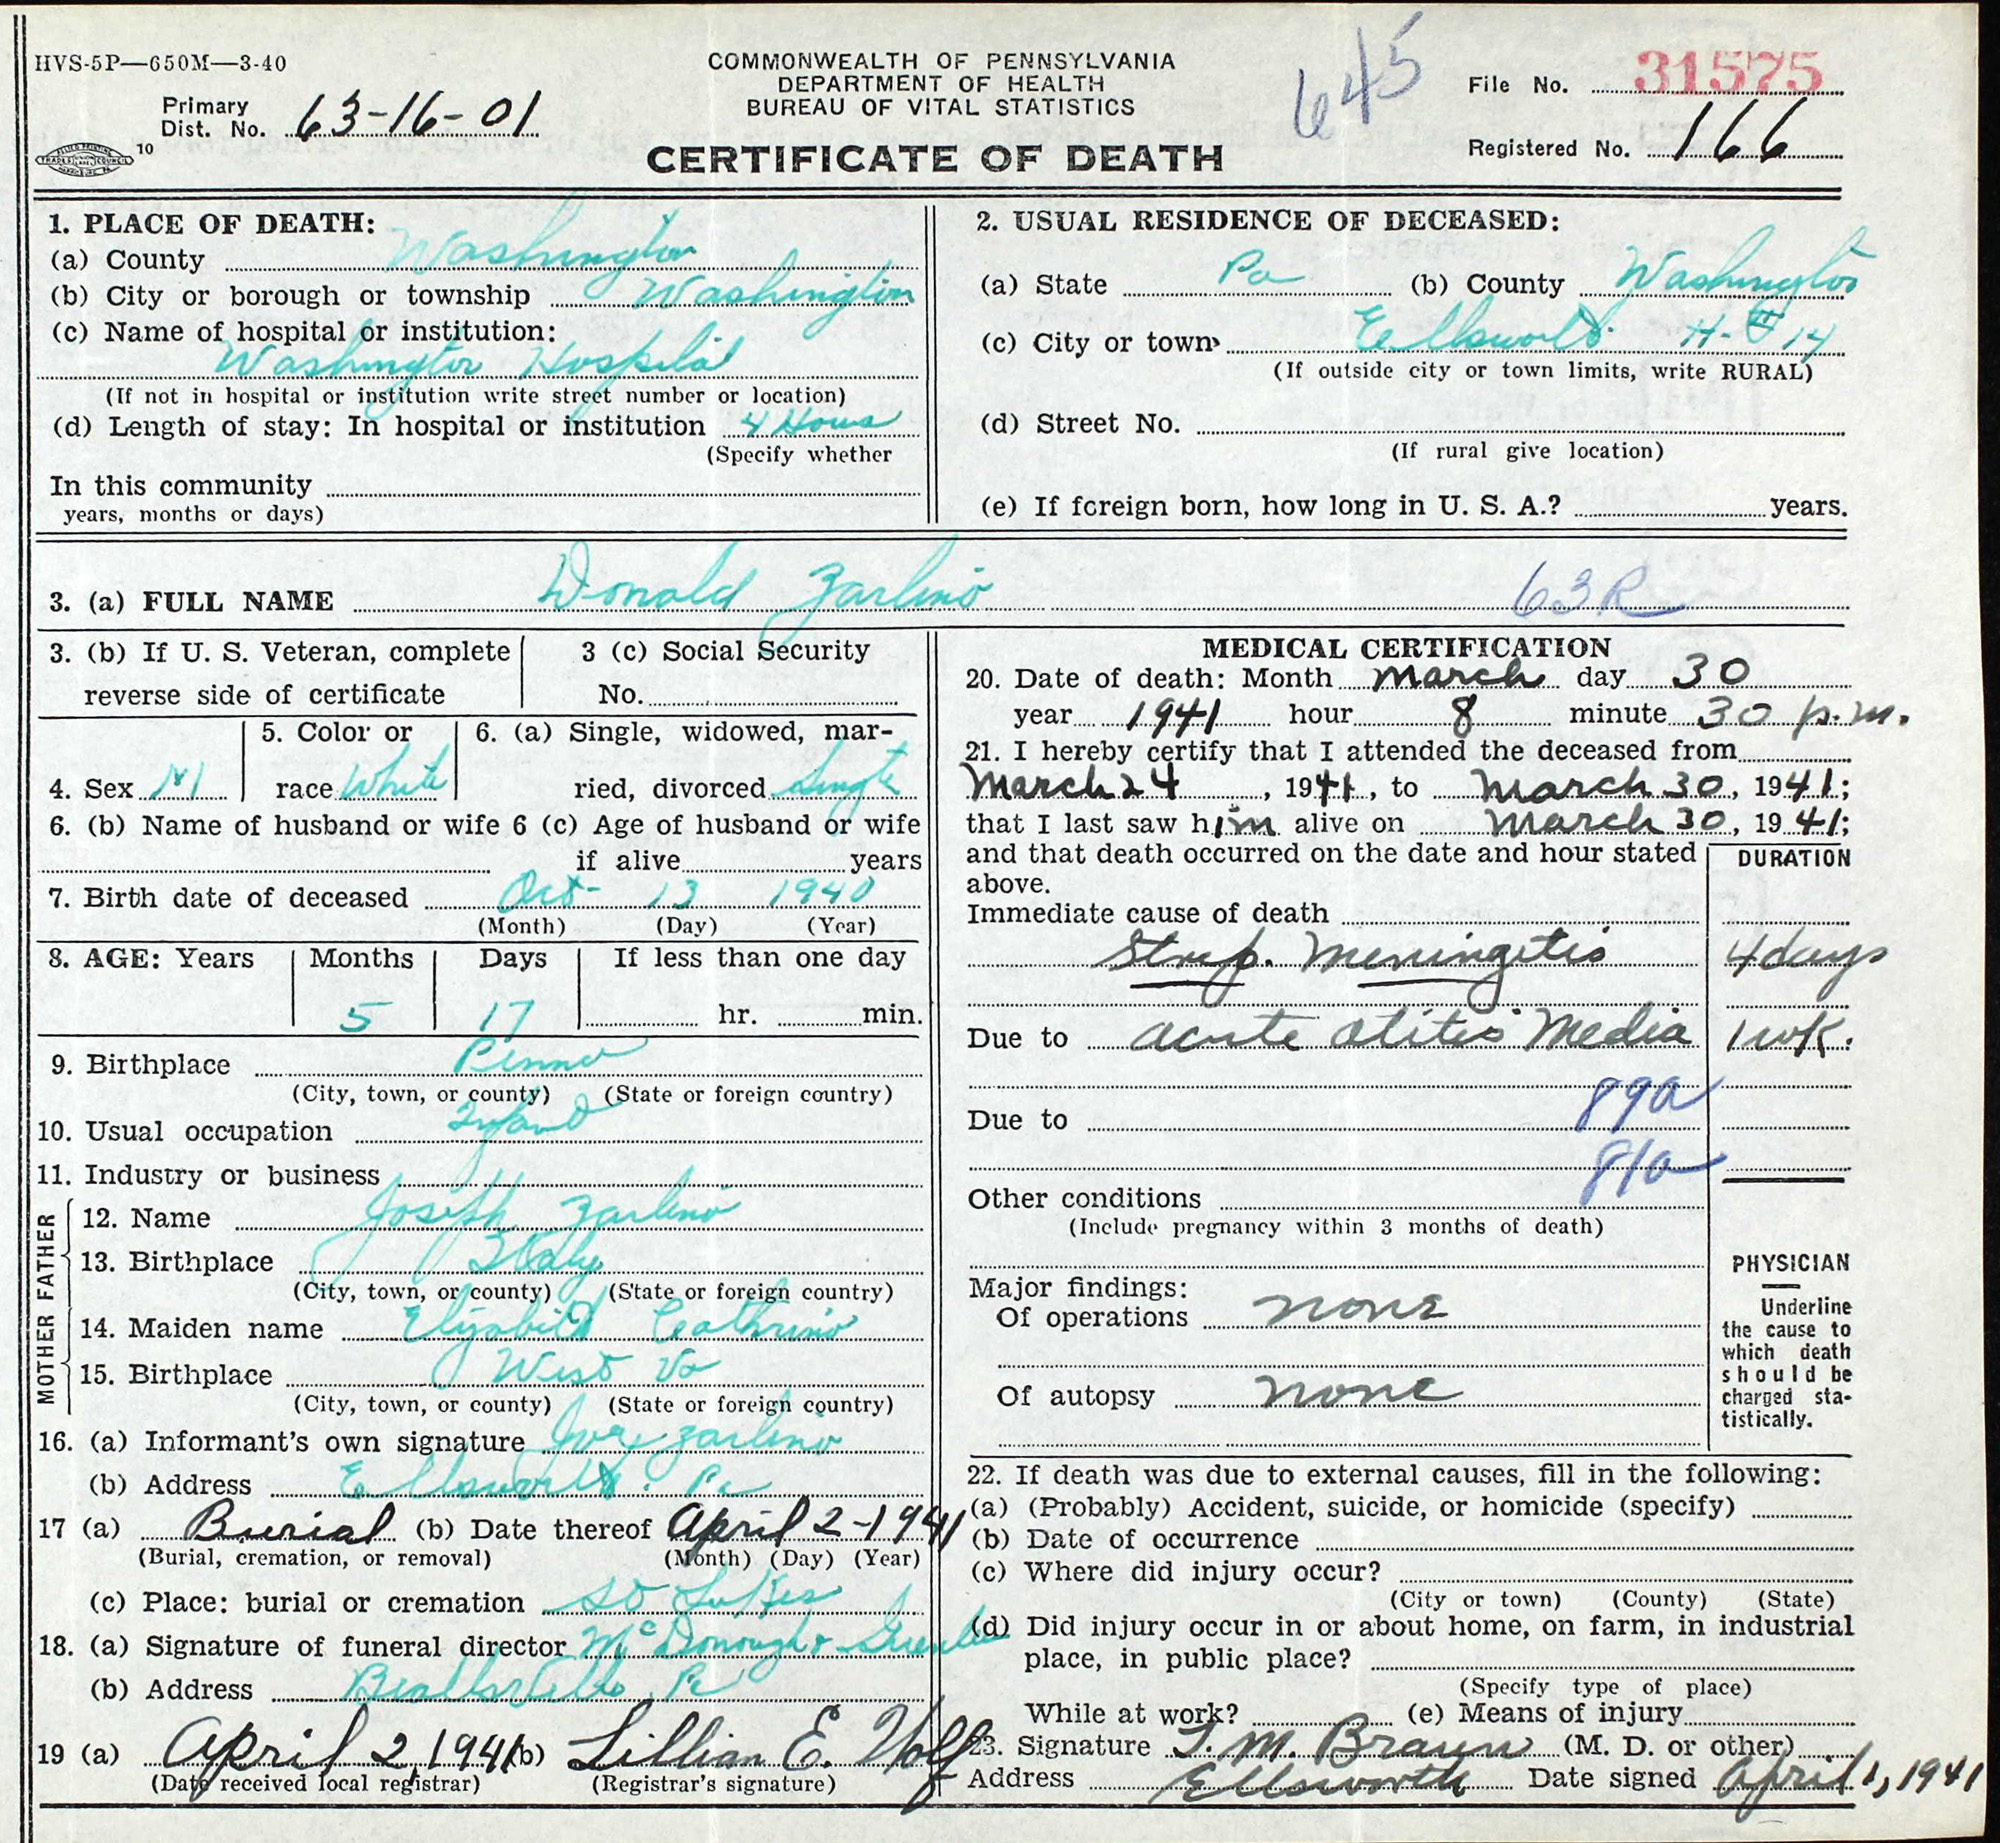 HVS-5P—650M—3-40
COMMONWEALTH OF PENNSYLVANIA
DEPARTMENT OF HEALTH
BUREAU OF VITAL STATISTICS
645
File No. 31575
Primary
Dist. No. 63-16-01
Registered No. 166
10
CERTIFICATE OF DEATH
1. PLACE OF DEATH:
(a) County Washington
(b) City or borough or township Washington
(c) Name of hospital or institution:
Washington Hospital
(If not in hospital or institution write street number or location)
(d) Length of stay: In hospital or institution 4 Hours
(Specify whether
In this community
years, months or days)
2. USUAL RESIDENCE OF DECEASED:
(a) State Pa (b) County Washington
(c) City or town Ellsworth H- 14
(If outside city or town limits, write RURAL)
(d) Street No.
(If rural give location)
(e) If foreign born, how long in U. S. A.? years.
3. (a) FULL NAME Donald Zarlino 63R
3. (b) If U. S. Veteran, complete
reverse side of certificate
3 (c) Social Security
No.
4. Sex M
5. Color or
race White
6. (a) Single, widowed, mar-
ried, divorced Single
6. (b) Name of husband or wife 6 (c) Age of husband or wife
if alive years
7. Birth date of deceased Oct- 13 1940
(Month) (Day) (Year)
8. AGE: Years Months Days If less than one day
5 17 hr. min.
9. Birthplace Penna
(City, town, or county) (State or foreign country)
10. Usual occupation Infant
11. Industry or business
FATHER
12. Name Joseph Zarlino
13. Birthplace Italy
(City, town, or county) (State or foreign country)
MOTHER
14. Maiden name Elizabeth Cathrino
15. Birthplace West Va
(City, town, or county) (State or foreign country)
16. (a) Informant's own signature Joe Zarlino
(b) Address Ellsworth. Pa
17 (a) Burial (b) Date thereof April 2-1941
(Burial, cremation, or removal) (Month) (Day) (Year)
(c) Place: burial or cremation St Lukes
18. (a) Signature of funeral director McDonough &
(b) Address Beallsville Pa
19 (a) April 2, 1941 (b) Lillian E. Wolf
(Date received local registrar) (Registrar's signature)
MEDICAL CERTIFICATION
20. Date of death: Month March day 30
year 1941 hour 8 minute 30 p.m.
21. I hereby certify that I attended the deceased from
March 24, 1941, to March 30, 1941;
that I last saw him alive on March 30, 1941;
and that death occurred on the date and hour stated
above.
DURATION
Immediate cause of death
Strep. Meningitis 4 days
Due to acute otitis Media 1 wk.
89a
Due to
81a
Other conditions
(Include pregnancy within 3 months of death)
Major findings:
Of operations none
Of autopsy none
PHYSICIAN
Underline
the cause to
which death
should be
charged sta-
tistically.
22. If death was due to external causes, fill in the following:
(a) (Probably) Accident, suicide, or homicide (specify)
(b) Date of occurrence
(c) Where did injury occur?
(City or town) (County) (State)
(d) Did injury occur in or about home, on farm, in industrial
place, in public place?
(Specify type of place)
While at work? (e) Means of injury
23. Signature T. M. Braun (M. D. or other)
Address Ellsworth Date signed April 1, 1941